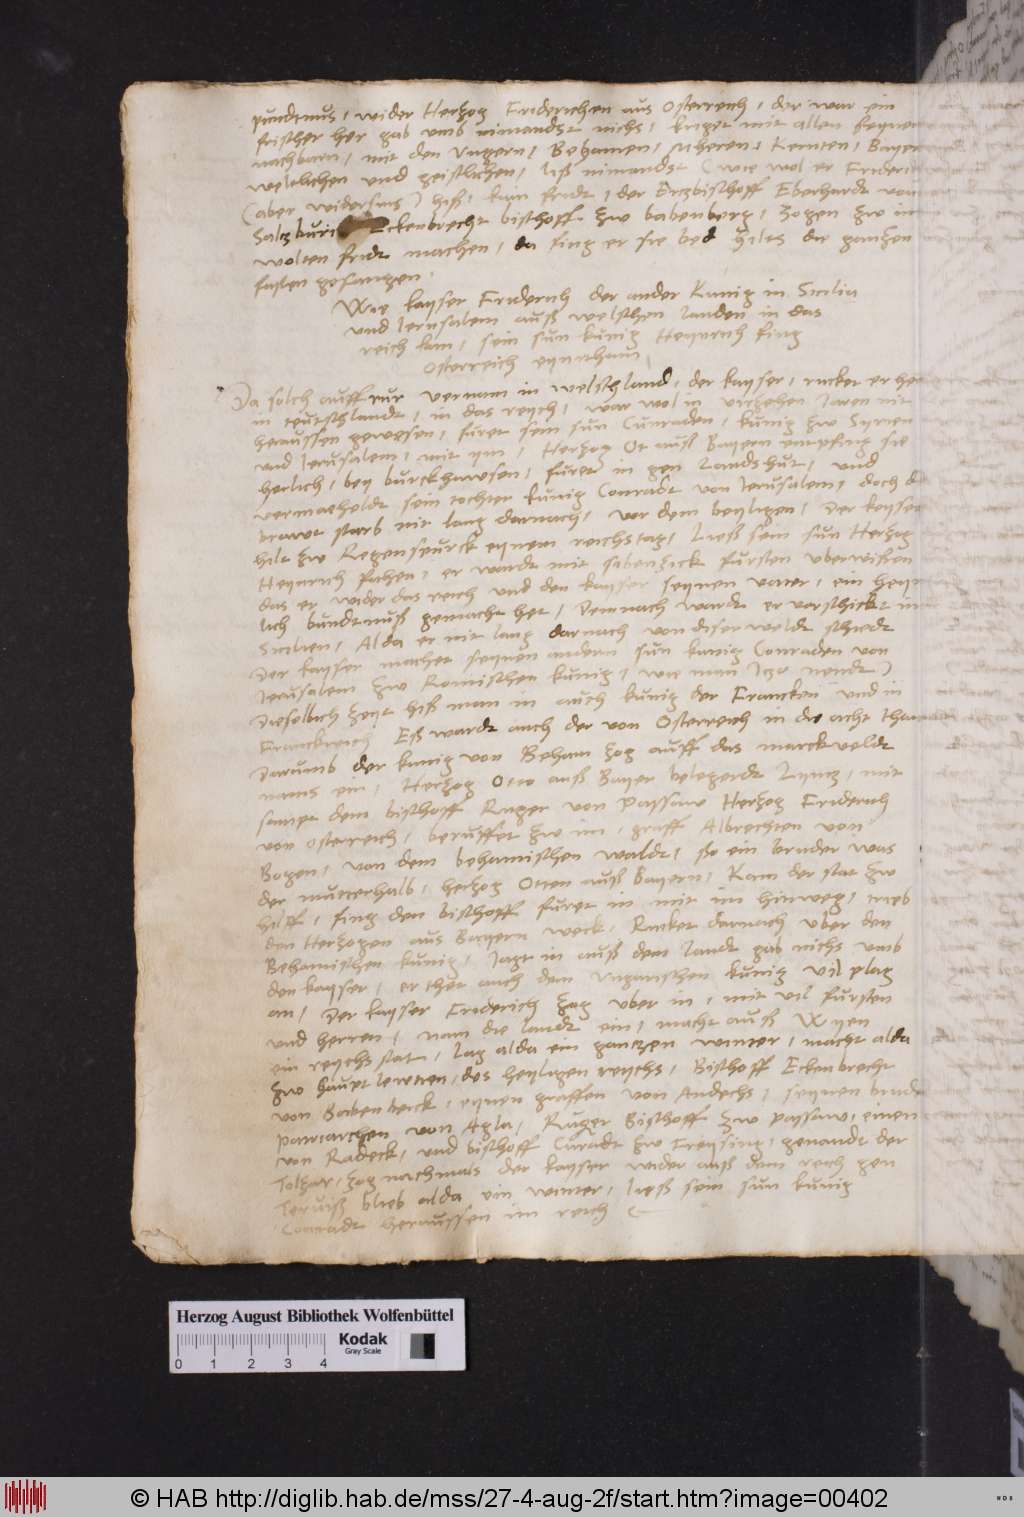 pundtnus, wider Hertzog Friderichen aus Osterreich, der war ein
frischer her gab umb nimandst nichs, kriget mit allen seynen
nachbarn, mit den Ungern, Behamen, Merern, Kernten, Bayer
weltlichen und geistlichen, ließ nimandst (wie wol er Frideri
(aber widersins) hiß, kain fridt, der Ertzbischoff Eberhardt von
Saltzburi Eckenbrecht bischoff zw babenberg, zogen zw im
wolten fridt machen, da fing er sie bed hilts die gantzen
fasten gefangen.
Wie kayser Friderich der ander Kunig in Sicilia
und Jerusalem auß welschen landen in das
reich kam, sein sun kunig Heynrich fing
Osterreich eynnham
Da solch auffrur vernam in welschland, der kayser, rucket er her
in teutschlandt, in das reych, war wol in virzehen Jaren nit
heraussen gewesen, füret sein sun Cunraden, kunig zw Syrien
und Jerusalem, mit ym, Hertzog Ot auß Bayern empfing sie
herlich, bey burckhawsen, füret in gen Landshut, und
vermahelt sein tochter kunig Conradt von Jerusalem, doch d
brawt starb nit lang darnach, vor dem beyligen, Der keyser
hilt zw Regenspurck eynem reichstag, Ließ sein sun Hertzog
Heynrich fahen, er wardt mit sibenzick fursten uberwisen
das er wider das reich und den kayser seynen vater, ein heym
lich bundtnuß gemacht het, Demnach wardt er verschickt in
Sicilien, Alda er nit lang darnach von diser weldt schiedt
Der kayser machet seynen andern sun kunig Conraden von
Jerusalem zw Romischen kunig, wie man Itzo nendt)
Dieselbich zeyt hiß man in auch kunig der Francken und in
Franckreich Eß wardt auch der von Osterreich in die acht than
Darumb der kunig von Beham zog auff das marckveldt
nams ein, Hertzog Otto auß Bayer belegerdt Lyntz, mit
sampt dem bischoff Ruger von Passaw Hertzog Friderich
von Osterreich, beruffet zw im, graff Albrechten von
Bogen, von dem behamischen waldt, so ein bruder was
der mutterhalb, hertzog Otten auß bayern, Kam der stat zw
hilff, fing den bischoff furet in mit im hinweg, trieb
den Hertzogen aus Bayern weck, Rucket darnach uber den
Behamischen kunig, Jagt in auß dem landt gab nichs umb
den kayser, er thet auch dem Ungarischen kunig vil plag
an, Der kayser Friderich zog uber in, mit vil fursten
und herren, nam die landt ein, macht auß Wyen
ein reychsstat, lag alda ein gantzen winter, macht alda
zw haupt lewtten, des heyligen reychs, Bischoff Eckenbrecht
von Babenberck, eynen graffen von Andechs, seynen bruder
Patriarchen von Agla, Ruger Bischoff zw passaw, einen
von Radeck, und bischoff Curadt zw Freysing, genandt der
Tolhzar, zog nachmals der kayser wider auß dem reich gen
Terviß blieb alda ein winter, ließ sein sun kunig
Conradt heraussen im reich
Herzog August Bibliothek Wolfenbüttel
0 1 2 3 4
Kodak
Gray Scale
© HAB http://diglib.hab.de/mss/27-4-aug-2f/start.htm?image=00402